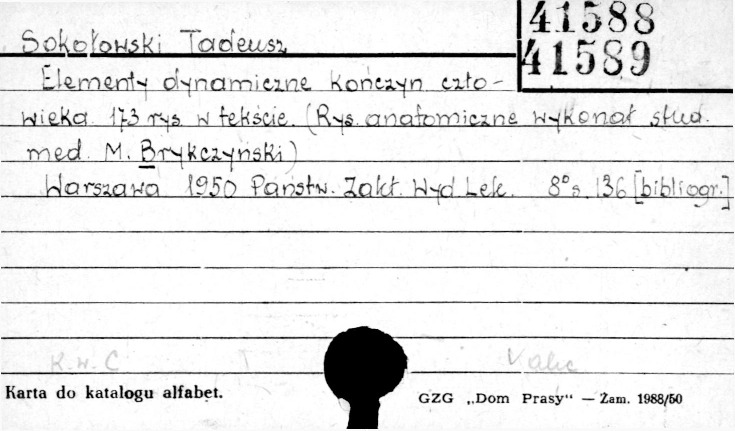 41588
Sokołowski Tadeusz 41589
Elementy dynamiczne kończyn czło-
wieka. 173 rys. w tekście. (Rys. anatomiczne wykonał stud.
med. M. Brykczyński)
Warszawa 1950 Państw. Zakł. Wyd. Lek. 8° s. 136 [bibliogr.]
K.W.C T
Karta do katalogu alfabet. GZG „Dom Prasy" — Zam. 1988/50